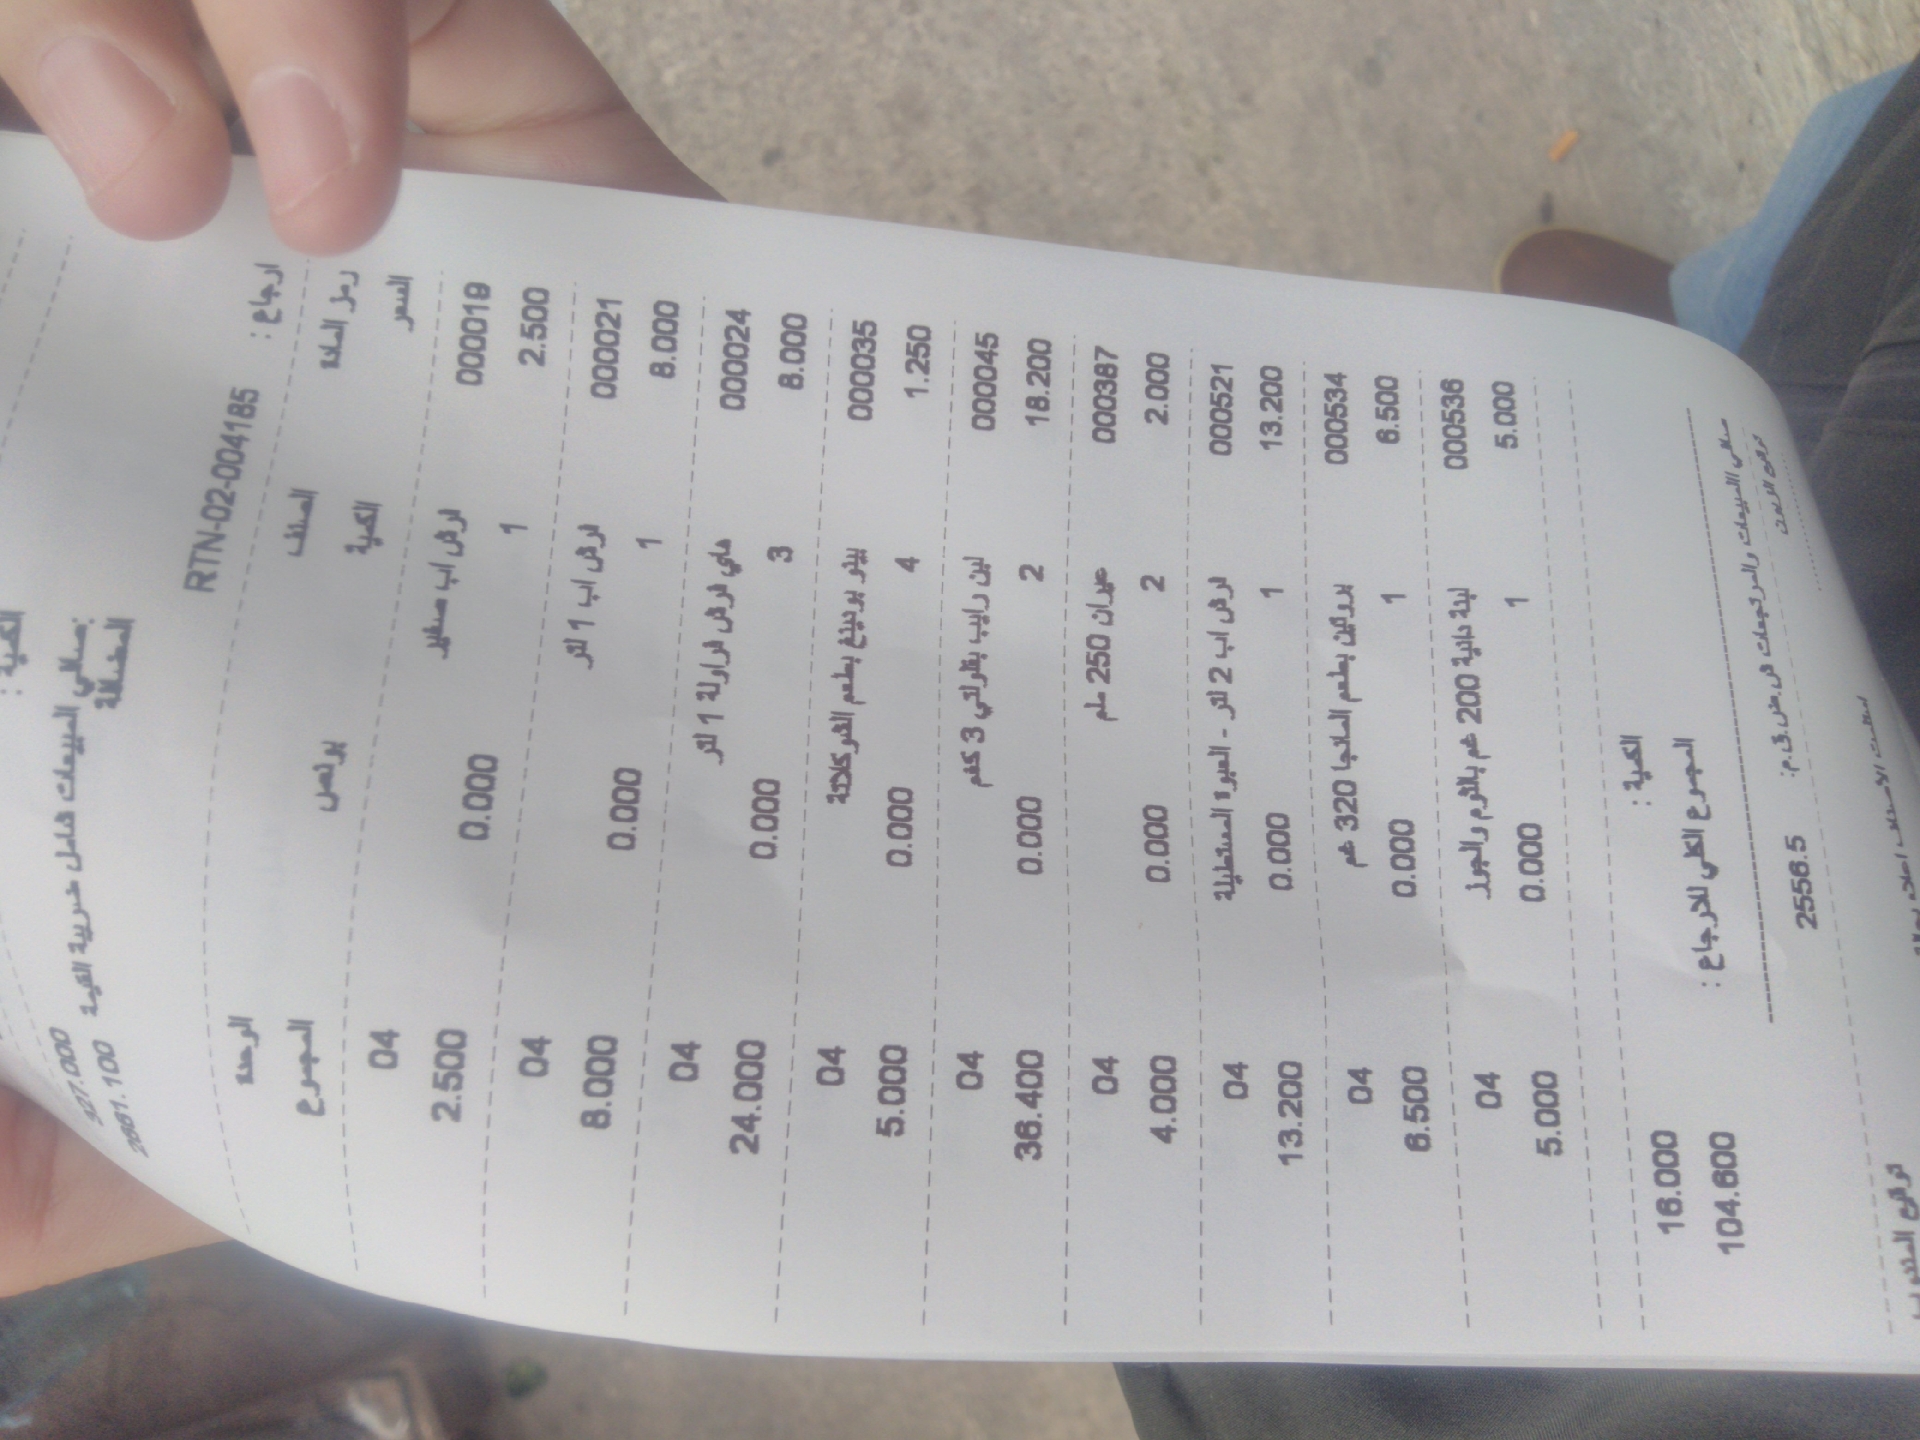 الكمية : 327.000
صافي المبيعات شامل ضريبة القيمة المضافة : 2661.100
ارجاع : RTN-02-004185
رمز المادة الصنف الوحدة
السعر الكمية بونص المجموع
000019 فرش اب صغير 04
2.500 1 0.000 2.500
000021 فرش اب 1 لتر 04
8.000 1 0.000 8.000
000024 هاي فرش فراولة 1 لتر 04
8.000 3 0.000 24.000
000035 بينو بودينغ بطعم الشوكلاتة 04
1.250 4 0.000 5.000
000045 لبن رايب بقلولتي 3 كغم 04
18.200 2 0.000 36.400
000387 عيران 250 ملم 04
2.000 2 0.000 4.000
000521 فرش اب 2 لتر - العبوة المستطيلة 04
13.200 1 0.000 13.200
000534 بروتين بطعم المانجا 320 غم 04
6.500 1 0.000 6.500
000536 لبنة دانية 200 غم بالثوم والجوز 04
5.000 1 0.000 5.000
الكمية : 16.000
المجموع الكلي للارجاع : 104.600
صافي المبيعات والمرتجعات ش.ض.ق.م: 2556.5